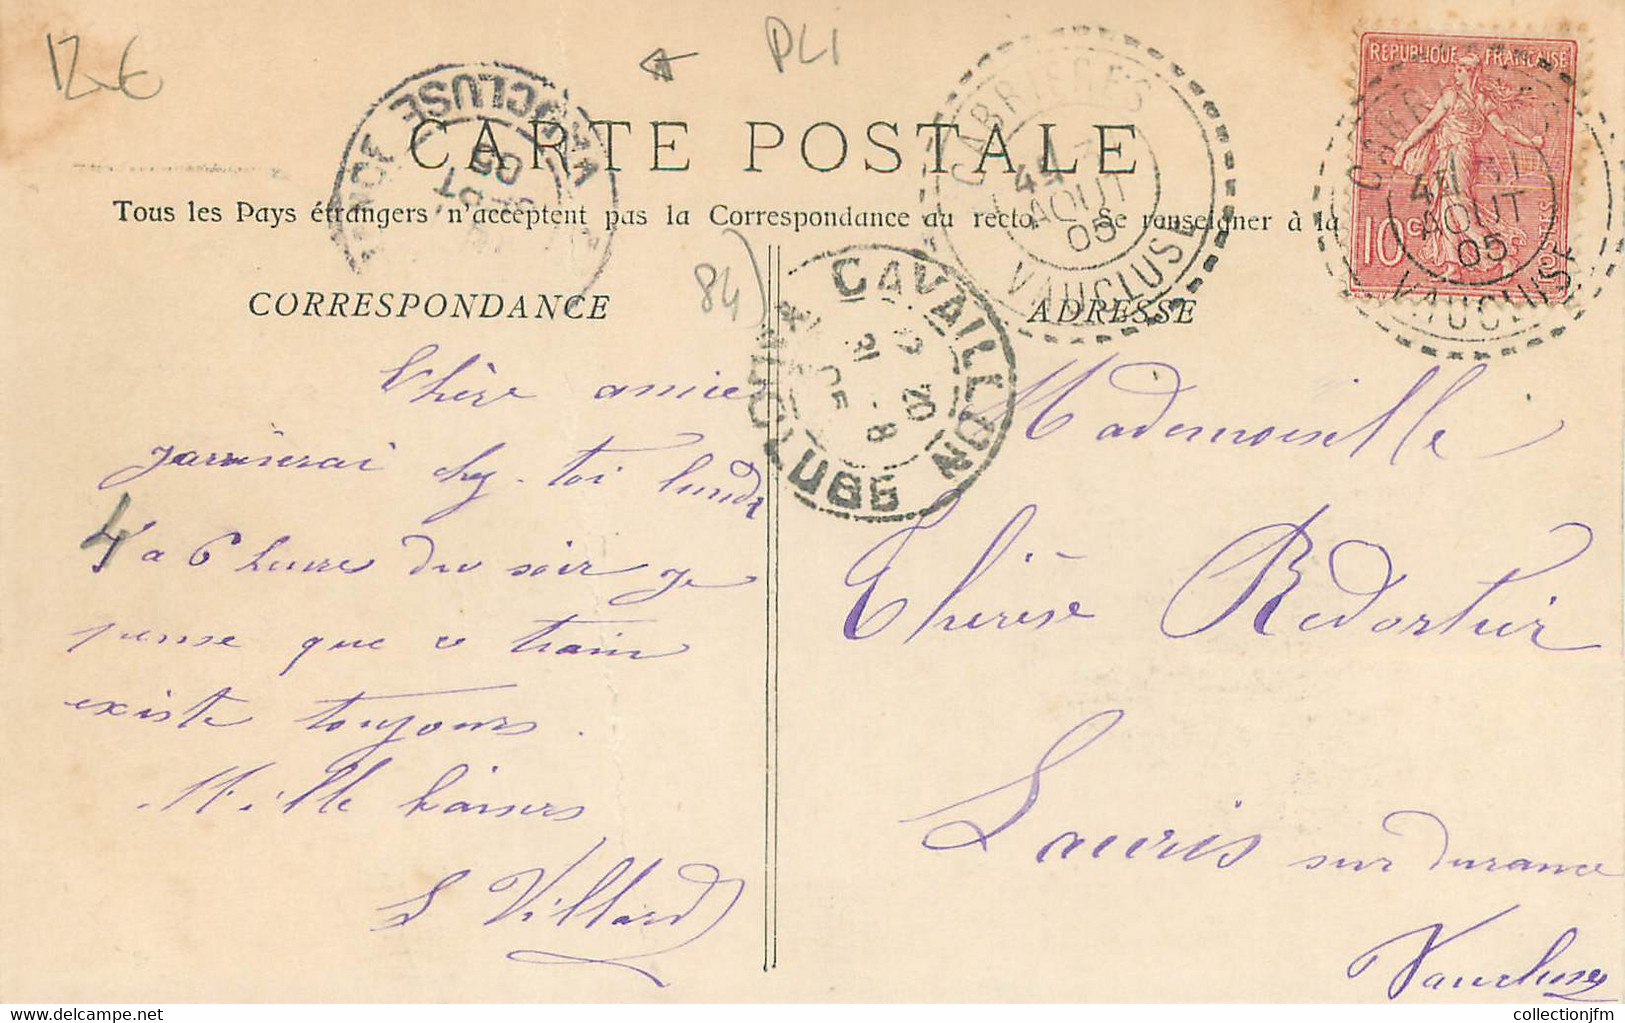 12 €
PLI
CARTE POSTALE
Tous les Pays étrangers n'acceptent pas la Correspondance au recto. Se renseigner à la
RÉPUBLIQUE FRANÇAISE
10 c
CABRIERES
31
AOUT
05
VAUCLUSE
31
AOUT
05
VAUCLUSE
SEPT
05
VAUCLUSE
84)
CAVAILLON
12 20
31 - 8
05
VAUCLUSE
CORRESPONDANCE
ADRESSE
Chère amie
J'arriverai chez toi lundi
4 a 6 heures du soir je
pense que ce train
existe toujours.
Mille baisers
S Villard
Mademoiselle
Thérèse Redortier
Lauris sur Durance
Vaucluse
collectionjfm